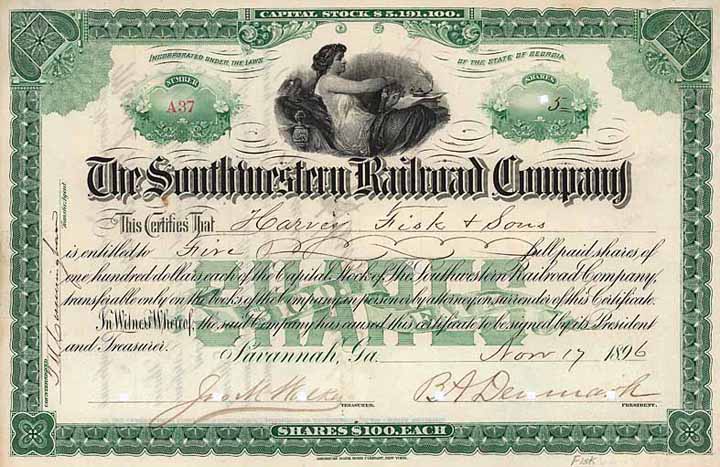 CAPITAL STOCK $5,191,100.
INCORPORATED UNDER THE LAWS OF THE STATE OF GEORGIA
NUMBER
A37
SHARES
5
The Southwestern Railroad Company
This Certifies That Harvey Fisk & Sons
is entitled to Five full paid shares of
one hundred dollars each of the Capital Stock of The Southwestern Railroad Company,
transferable only on the books of the Company in person or by attorney on surrender of this Certificate.
In Witness Whereof, the said Company has caused this certificate to be signed by its President
and Treasurer.
Savannah, Ga. Nov 17 1896
TREASURER.
B A Denmark
PRESIDENT.
COUNTERSIGNED
Transfer Agent
SHARES $100. EACH
AMERICAN BANK NOTE COMPANY, NEW YORK.
Fisk